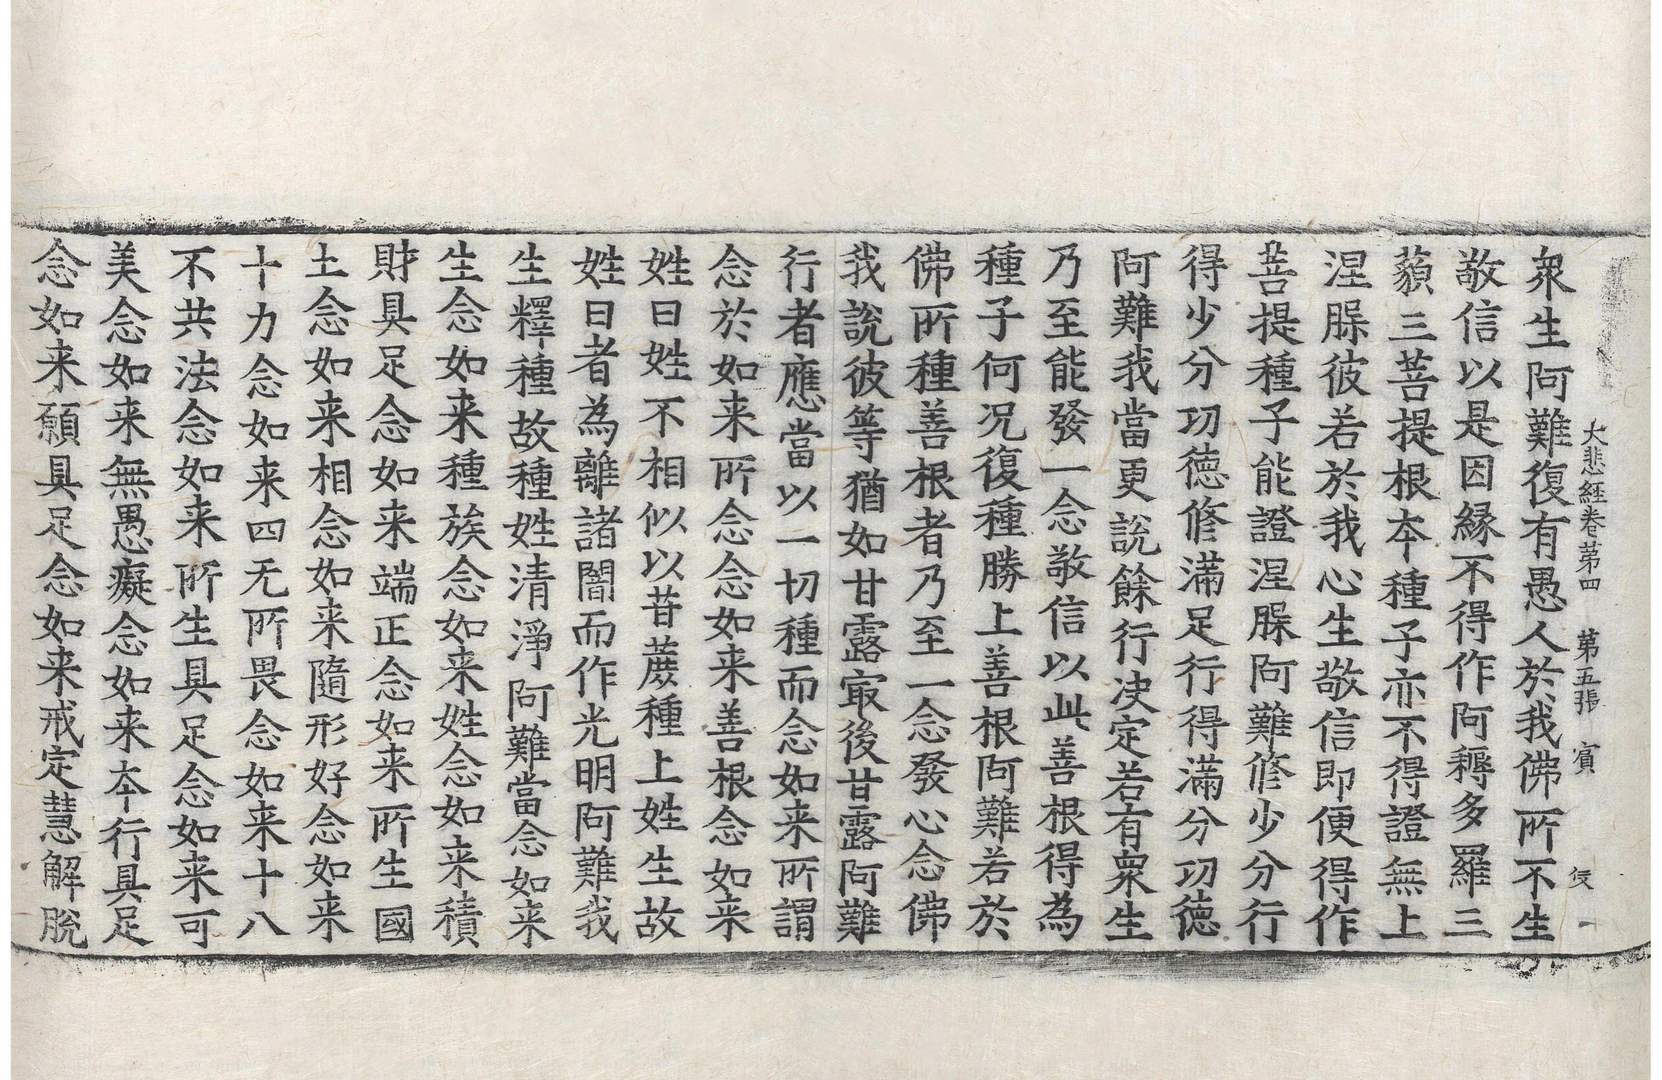 大悲經卷第四　第五張　賓
衆生阿難復有愚人於我佛所不生
敬信以是因緣不得作阿耨多羅三
藐三菩提根本種子亦不得證無上
涅槃彼若於我心生敬信即便得作
菩提種子能證涅槃阿難修少分行
得少分功德修滿足行得滿分功德
阿難我當更說餘行决定若有衆生
乃至能發一念敬信以此善根得為
種子何况復種勝上善根阿難若於
佛所種善根者乃至一念發心念佛
我說彼等猶如甘露㝡後甘露阿難
行者應當以一切種而念如来所謂
念於如来所念念如来善根念如来
姓曰姓不相似以昔蔗種上姓生故
姓曰者為離諸闇而作光明阿難我
生釋種故種姓清淨阿難當念如来
生念如来種族念如来姓念如来積
財具足念如来端正念如来所生國
土念如来相念如来隨形好念如来
十力念如来四无所畏念如来十八
不共法念如来所生具足念如来可
美念如来無愚癡念如来本行具足
念如来願具足念如来戒定慧解脫